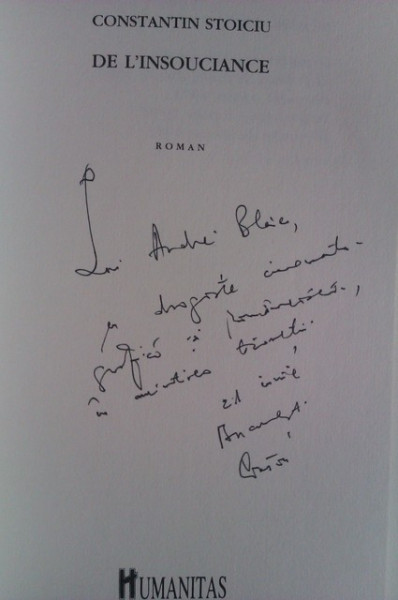 CONSTANTIN STOICIU
DE L'INSOUCIANCE
ROMAN
Lui Andrei Blaier,
cu dragoste cinemato-
grafică și românească,
în amintirea tinereții.
21 iunie
București
HUMANITAS